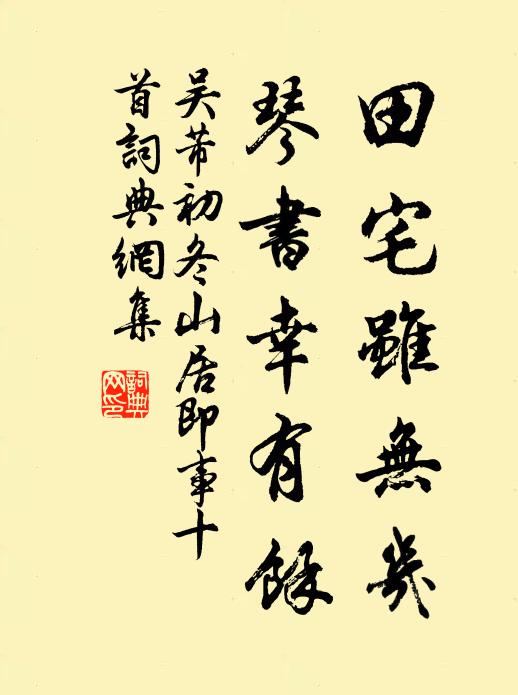 田宅雖無幾
琴書幸有餘
吴芾初冬山居即事十
首詞典網集
詞典
网印